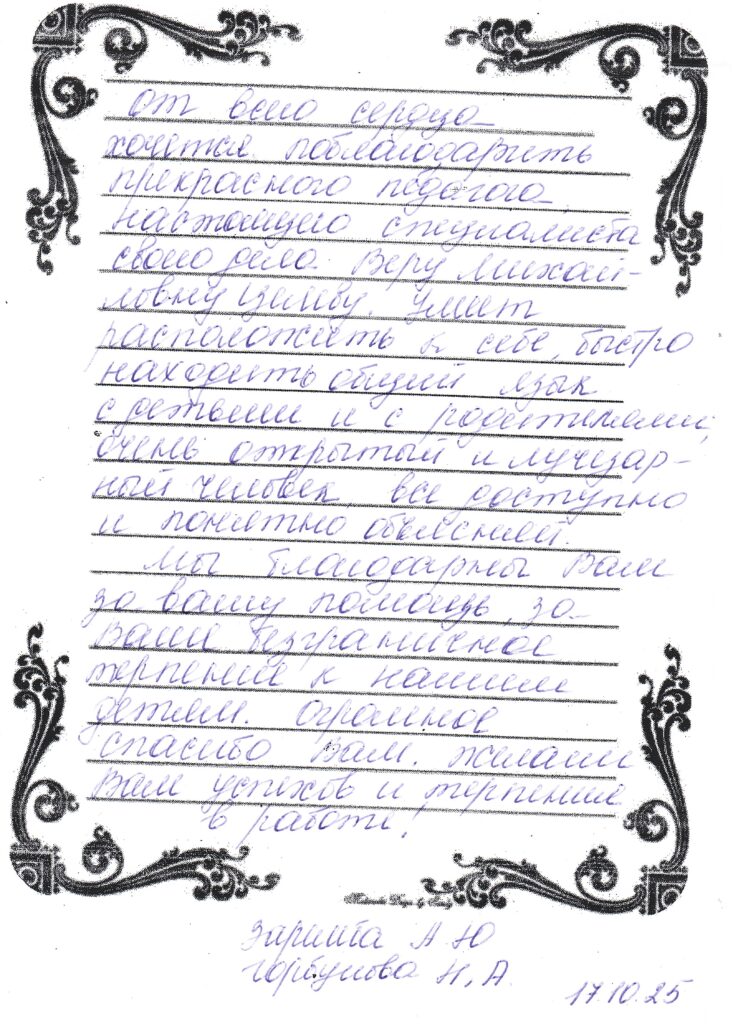 От всего сердца
хочется поблагодарить
прекрасного педагога
настоящего специалиста
своего дела Веру Михай-
ловну Умеет
расположить к себе, быстро
находить общий язык
с детьми и с родителями,
очень открытый и лучезар-
ный человек все доступно
и понятно объясняет.
Мы благодарны Вам
за вашу помощь, за
Ваше безграничное
терпение к нашим
детям. Огромное
спасибо Вам. Желаем
Вам успехов и терпение
в работе!
А Ю
Горбунова Н. А.
17.10.25